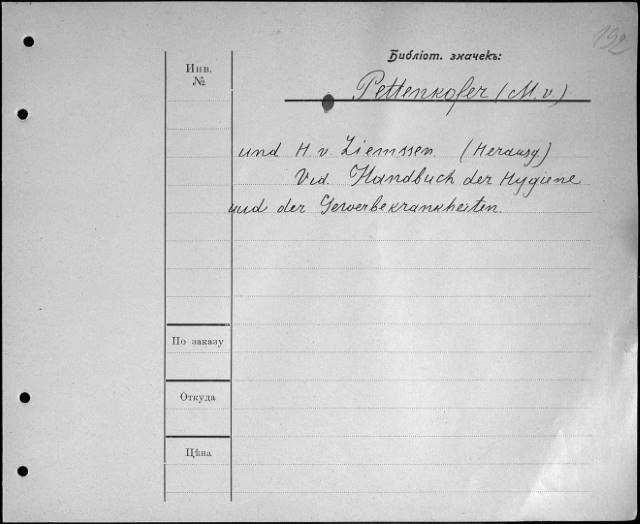 192
Библіот. значекъ:
Инв.
№
Pettenkofer (M. v.)
und H. v. Ziemssen. (Herausg.)
Vid. Handbuch der Hygiene
und der Gewerbekrankheiten.
По заказу
Откуда
Цѣна